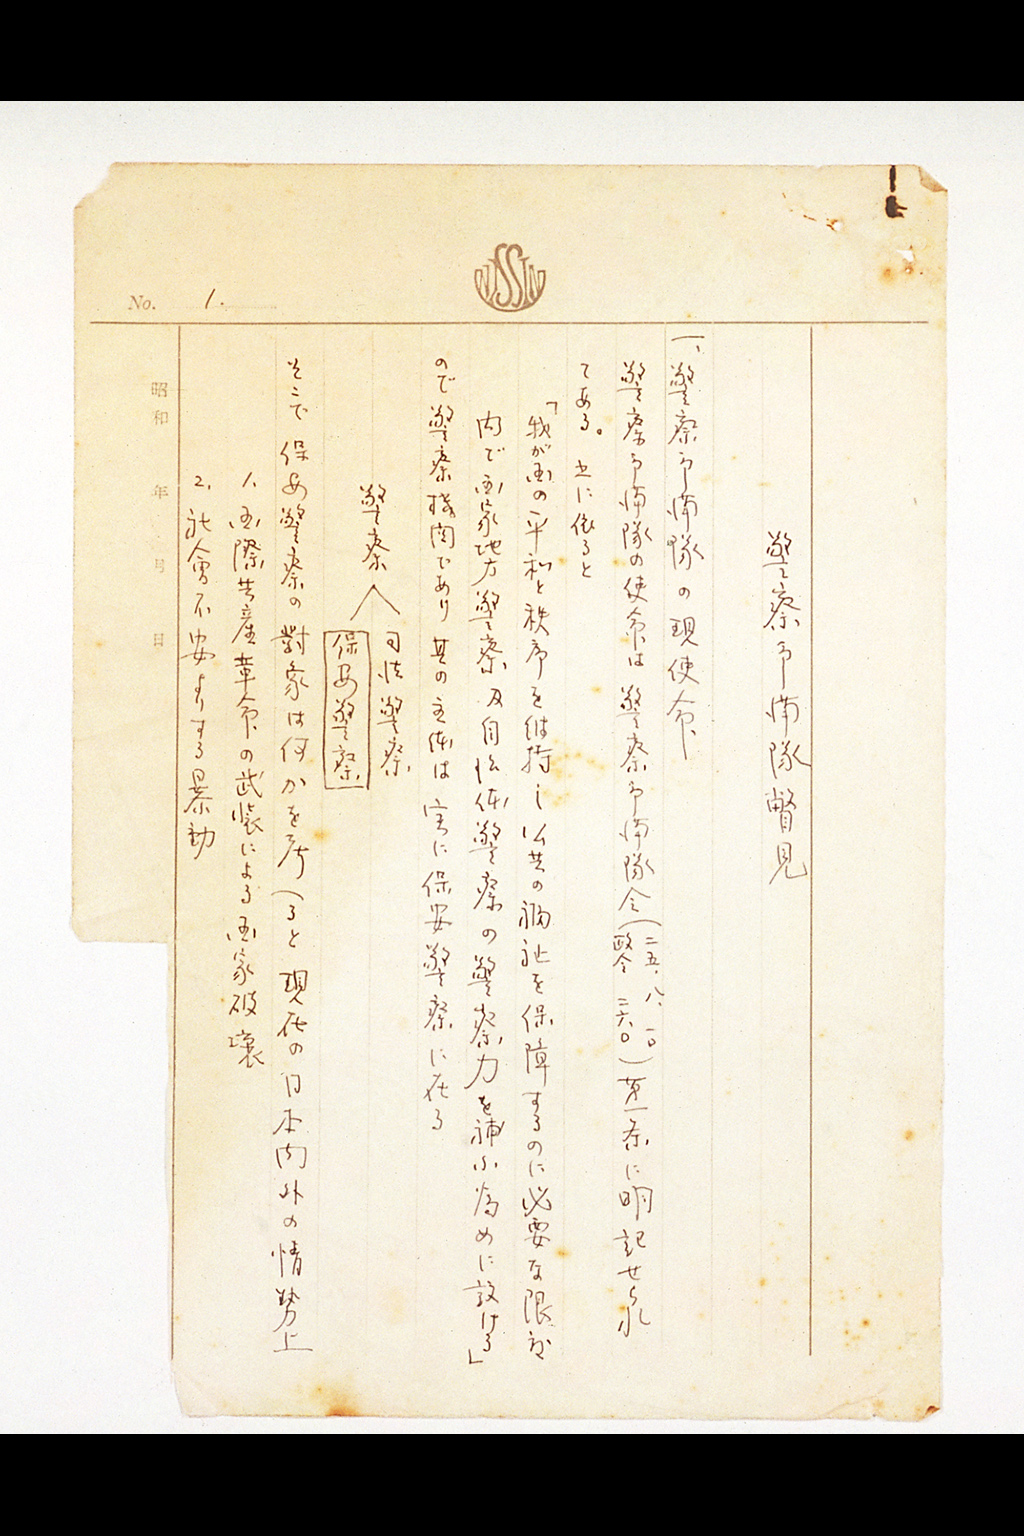 NISSIN
No. 1.
警察予備隊瞥見
一、警察予備隊の現使命
警察予備隊の使命は警察予備隊令(二五、八、一〇政令二六〇)第一条に明記せられ
てある。之に依ると
「我が国の平和と秩序を維持し公共の福祉を保障するのに必要な限度
内で国家地方警察及自治体警察の警察力を補ふ為めに設ける」
ので警察機関であり其の主体は実に保安警察に在る
警察
司法警察
保安警察
そこで保安警察の對象は何かを考へると現在の日本内外の情勢上
1、国際共産革命の武装による国家破壊
2、社會不安よりする暴動
昭和 年 月 日